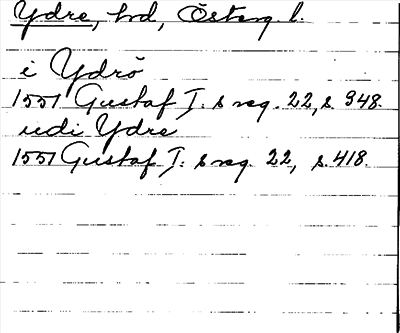 Ydre, hd, Österg. l.
i Ydrö
1551 Gustaf I:s reg. 22, s. 348.
udi Ydre
1551 Gustaf I:s reg. 22, s. 418.